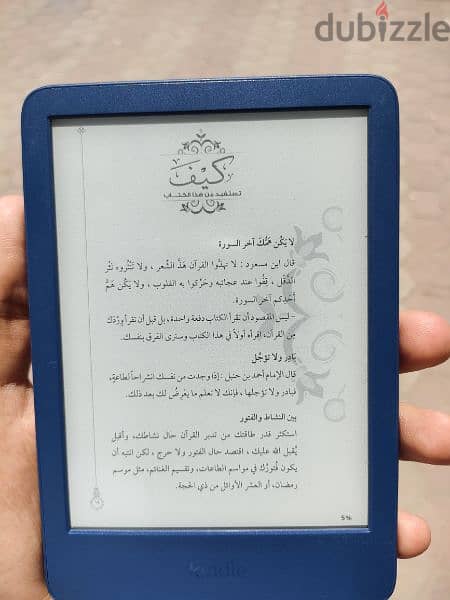 dubizzle
كيف
تستفيد من هذا الكتاب
لا يَكُن هَمُّكَ آخر السورة
قال ابن مسعود : لا تهذّوا القرآن هَذَّ الشِّعر ، ولا تَنْثُروه نَثْرَ
الدَّقَل ، قِفُوا عند عجائبه وحَرِّكوا به القلوب ، ولا يَكُن هَمُّ
أحدِكم آخر السورة.
- ليس المقصود أن تقرأ الكتاب دفعة واحدة، بل قبل أن تقرأ وِرْدَكَ
من القرآن، اقرأه أولاً في هذا الكتاب وسترى الفرق بنفسك.
بَادر ولا تؤجّل
قال الإمام أحمد بن حنبل : إذا وجدت من نفسك انشراحاً لطاعةٍ،
فبادر ولا تؤجلها ، فإنك لا تعلم ما يعْرِضُ لك بعد ذلك.
بين النشاط والفتور
استكثر قدر طاقتك من تدبر القرآن حال نشاطك، وأقبِل
يُقبل الله عليك ، اقتصد حال الفتور ولا حرج ، لكن انتبه أن
يكون فُتورُك في مواسم الطاعات، وتقسيم الغنائم، مثل موسم
رمضان، أو العشر الأوائل من ذي الحجة.
5%
kindle